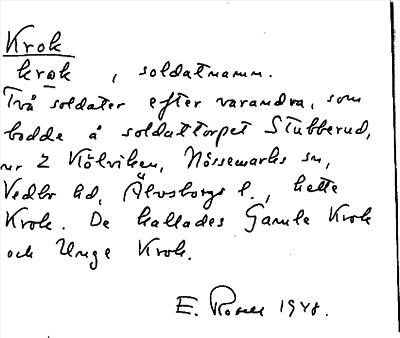 Krok
krok , soldatnamn.
Två soldater efter varandra, som
bodde å soldattorpet Stubberud,
nr 2 Kölviken, Nössemarks sn,
Vedbo hd, Älvsborgs l., hette
Krok. De kallades Gamle Krok
och Unge Krok.
E. 1948.